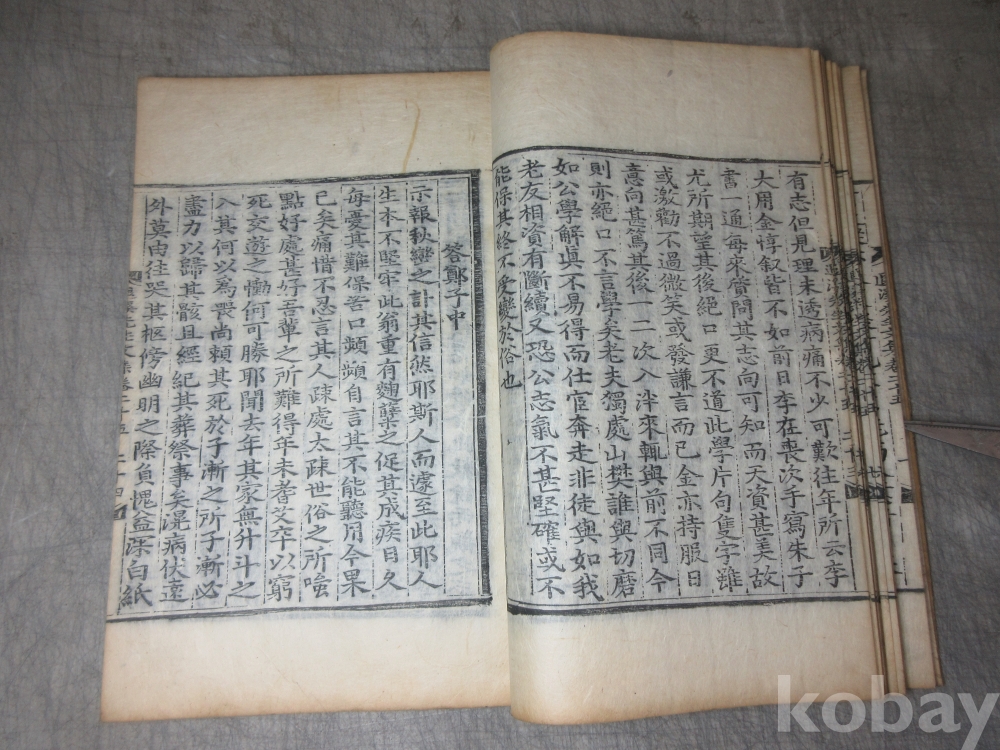 有志但見理未透病痛不少可歎往年所云李
大用金惇叙皆不如前日李在喪次手寫朱子
書一通每來質問其志向可知而天資甚美故
尤所期望其後絕口更不道此學片句隻字雖
或激勸不過微笑或發謙言而已金亦持服日
意向甚篤其後一二次入泮來輒與前不同今
則亦絕口不言學矣老夫獨處山樊誰與切磨
如公學解眞不易得而仕宦奔走非徒與如我
老友相資有斷續又恐公志氣不甚堅確或不
能保其終不受變於俗也
答鄭子中
示報秋巒之計其信然耶斯人而遽至此耶人
生本不堅牢此翁重有麴糵之促其成疾日久
每憂其難保苦口頻頻自言其不能聽用今果
已矣痛惜不忍言其人疎處太疎世俗之所嗤
點好處甚好吾輩之所難得年未耆艾卒以窮
死交遊之慟何可勝耶聞去年其家無升斗之
入其何以爲喪尚賴其死於子漸之所子漸必
盡力以歸其骸且經紀其葬祭事矣滉病伏遠
外莫由往哭其柩傍幽明之際負愧益深白紙
kobay